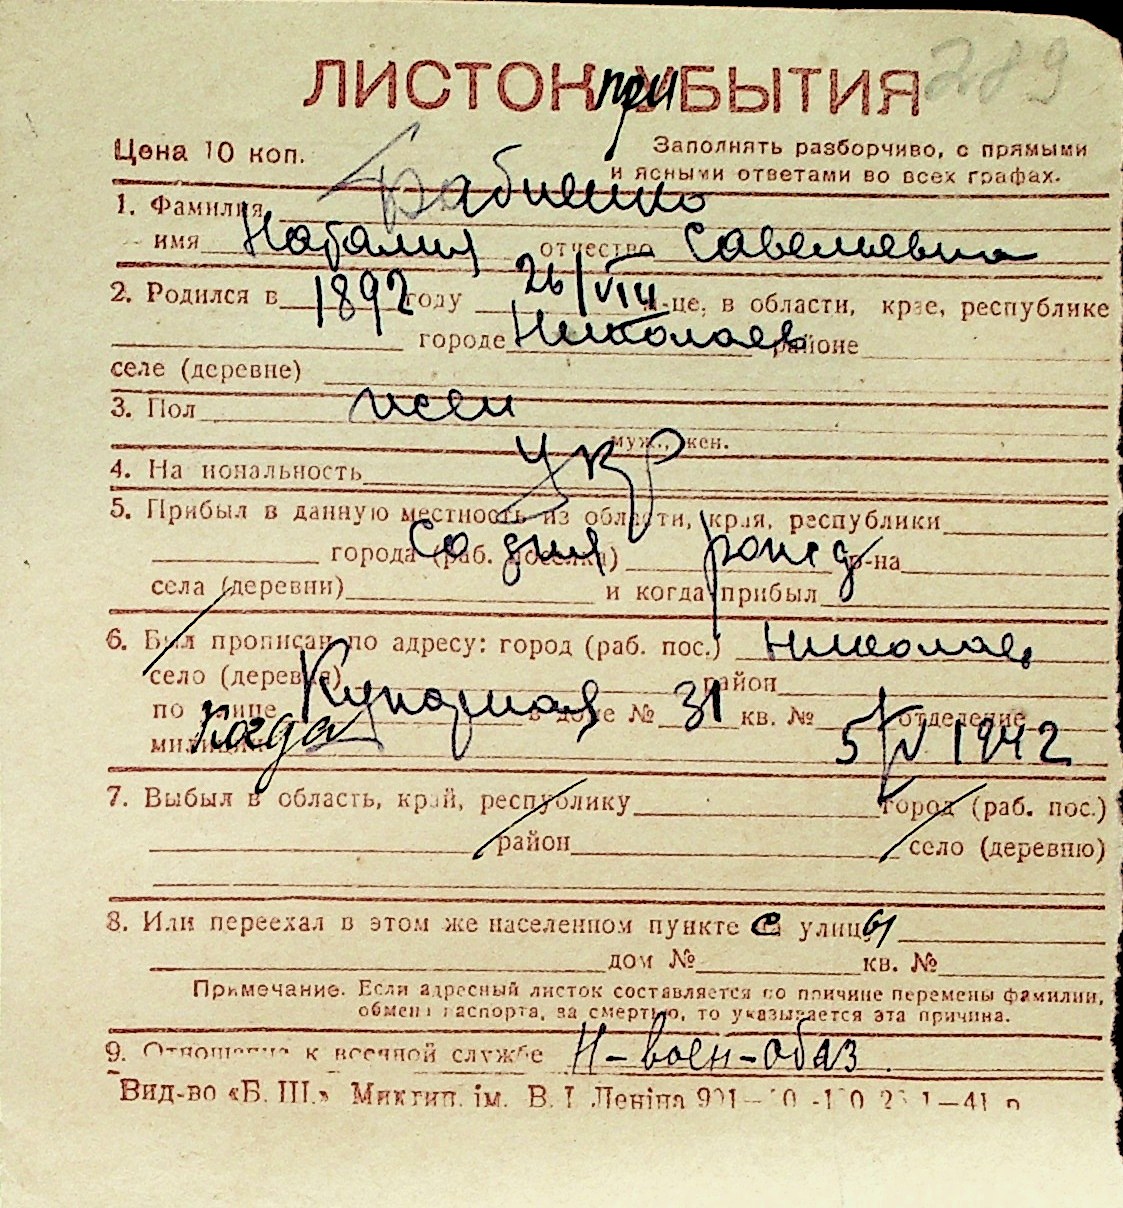 289
ЛИСТОК при БЫТИЯ
Цена 10 коп.
Заполнять разборчиво, с прямыми
и ясными ответами во всех графах.
1. Фамилия
имя Наталия отчество Савельевна
2. Родился в 1892 году 26/VIII м-це, в области, крае, республике
городе Николаев районе
селе (деревне)
3. Пол жен
муж., жен.
4. Национальность Укр
5. Прибыл в данную местность из области, края, республики
города (раб. поселка) Со дня рожд р-на
села (деревни) и когда прибыл
6. Был прописан по адресу: город (раб. пос.) Николаев
село (деревня) район
по улице в доме № 31 кв. № отделение
милиции Когда 5/IV 1942
7. Выбыл в область, край, республику город (раб. пос.)
район село (деревню)
8. Или переехал в этом же населенном пункте с улицы
дом № кв. №
Примечание. Если адресный листок составляется по причине перемены фамилии,
обмена паспорта, за смертью, то указывается эта причина.
9. Отношение к военной службе Н-воен-обяз.
Вид-во «Б. Ш.» Миктип. ім. В. І. Леніна